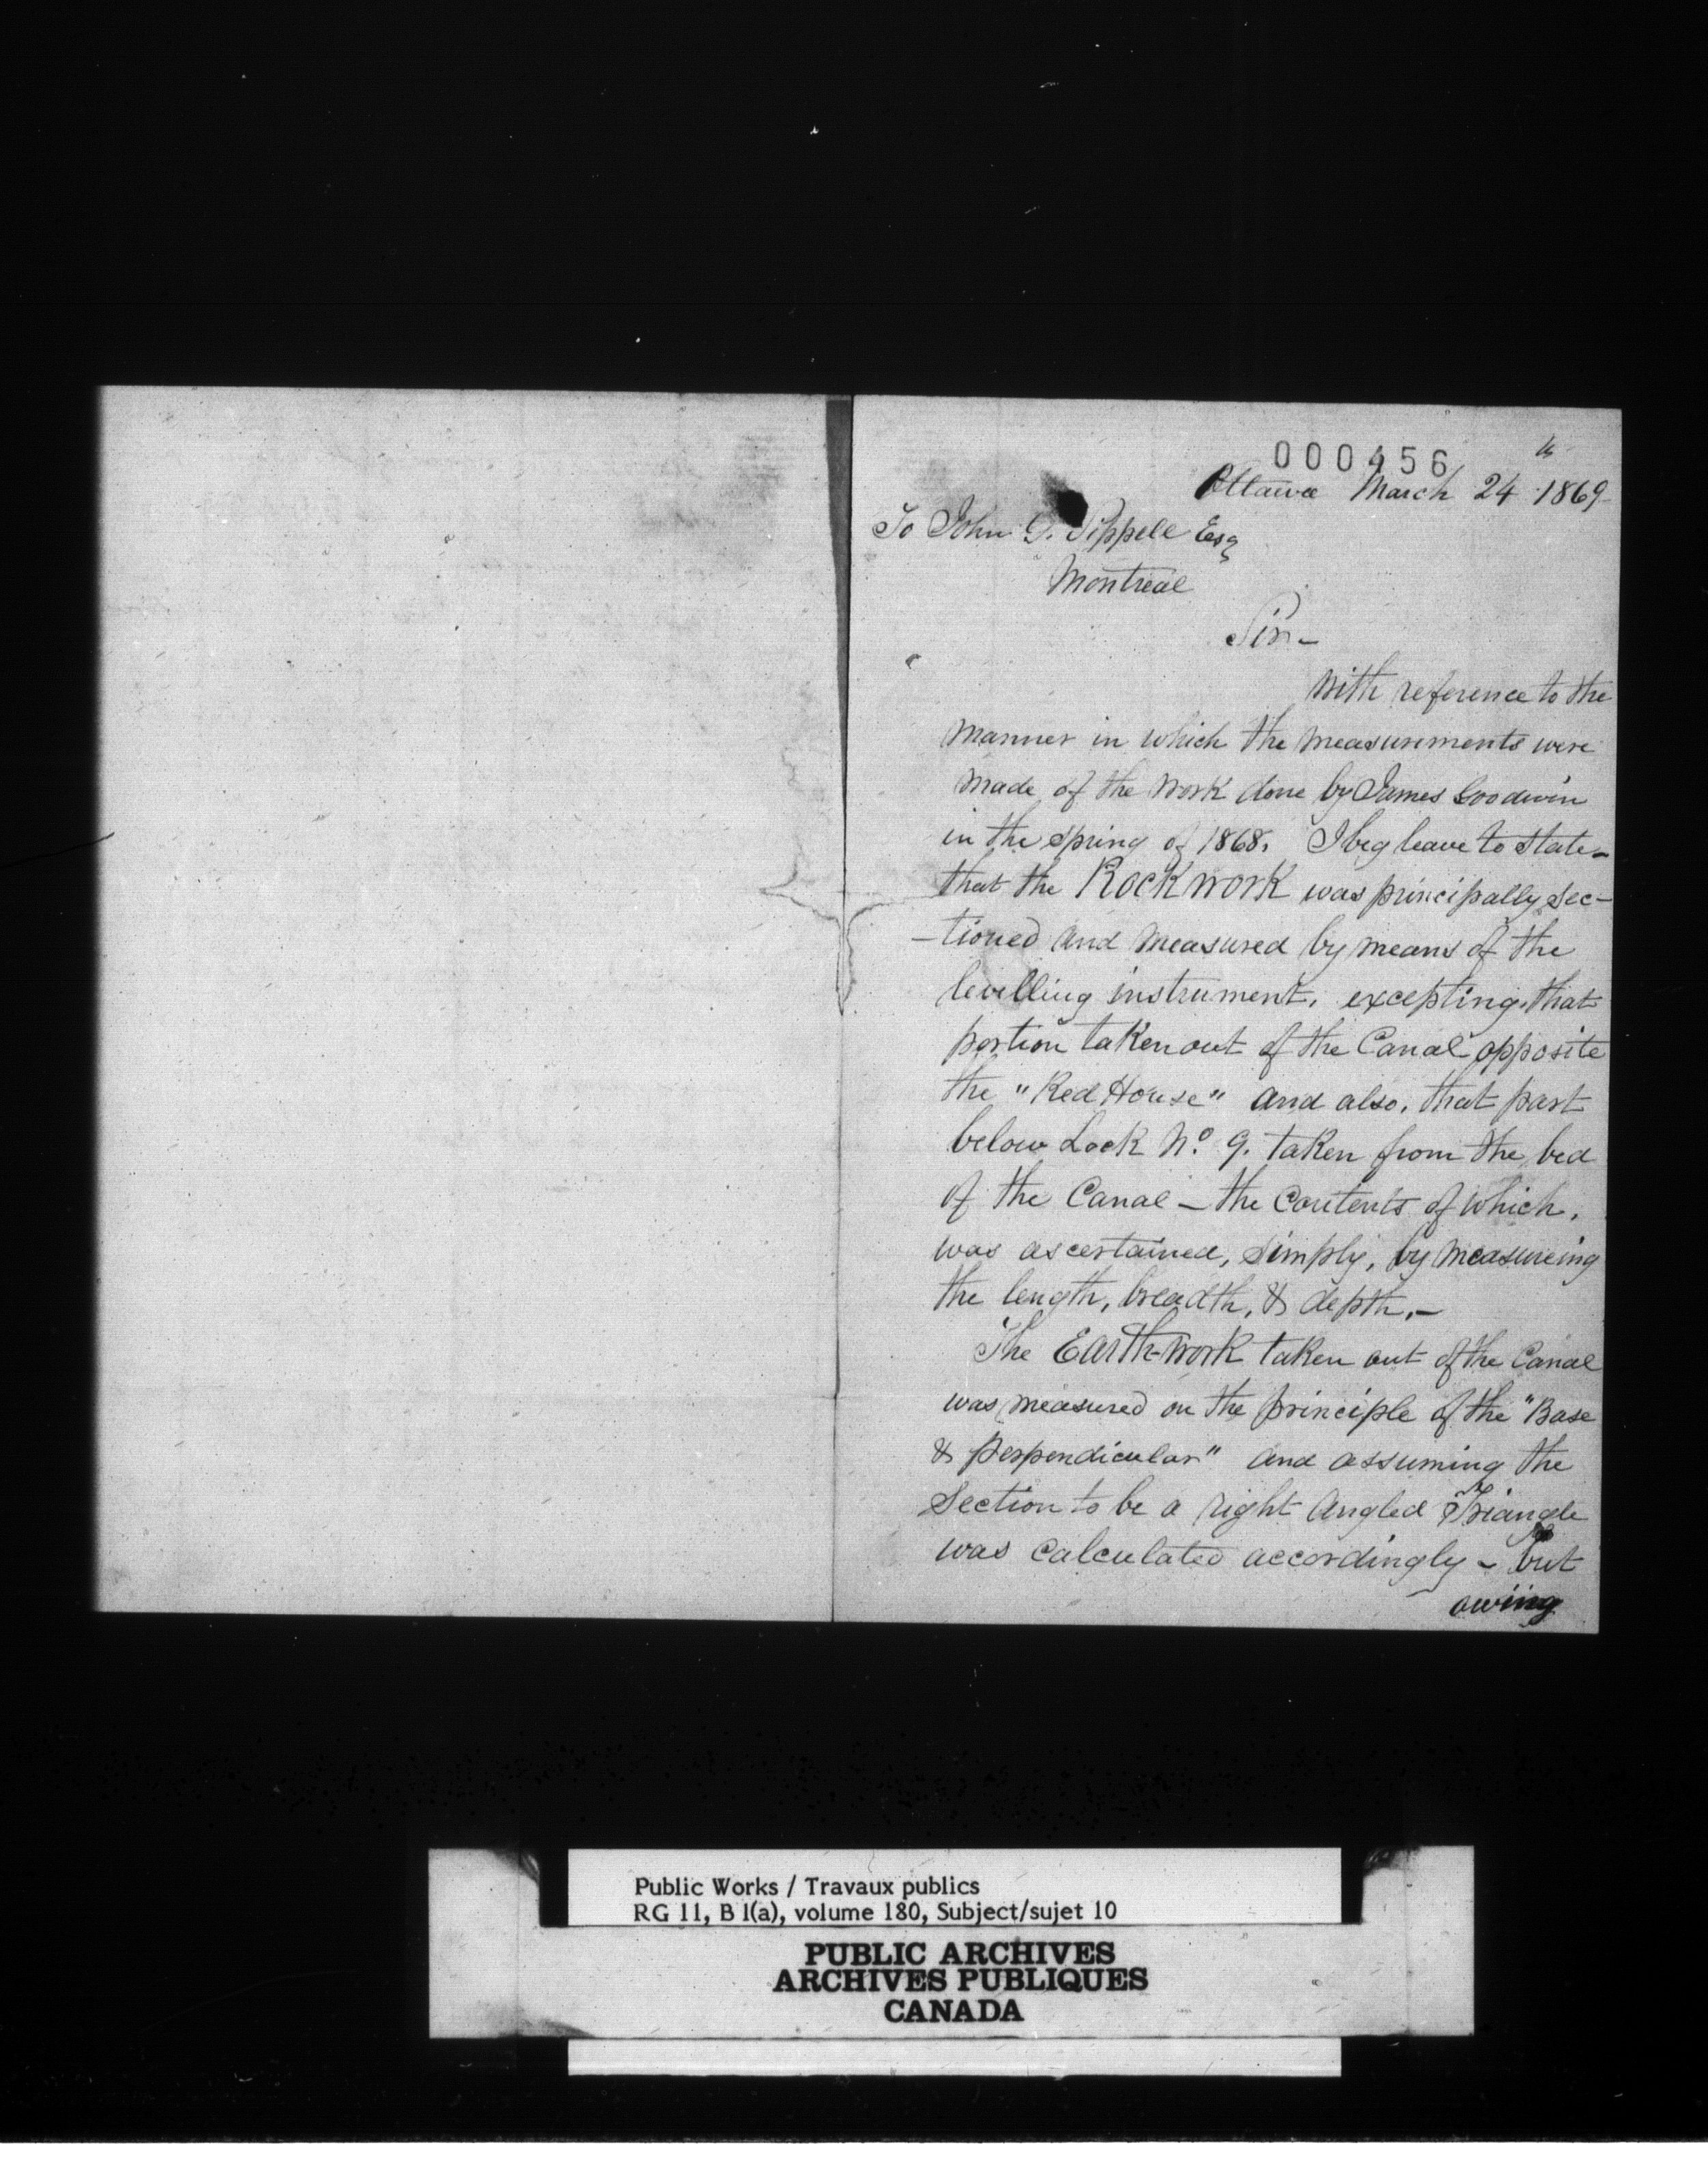 000456
Ottawa March 24th 1869
To John G. Sippell Esq
Montreal
Sir -
With reference to the
manner in which the measurements were
made of the work done by James Goodwin
in the spring of 1868. I beg leave to state -
that the Rock work was principally sec-
-tioned and measured by means of the
levelling instrument, excepting, that
portion taken out of the Canal opposite
the "Red House" and also, that part
below Lock No. 9. taken from the bed
of the Canal - the contents of which,
was ascertained, simply, by measureing
the length, breadth, & depth. -
The Earth-work taken out of the Canal
was measured on the principle of the "Base
& Perpendicular" and assuming the
Section to be a right angled Triangle
was calculated accordingly - but
owing
Public Works / Travaux publics
RG 11, B 1(a), volume 180, Subject/sujet 10
PUBLIC ARCHIVES
ARCHIVES PUBLIQUES
CANADA